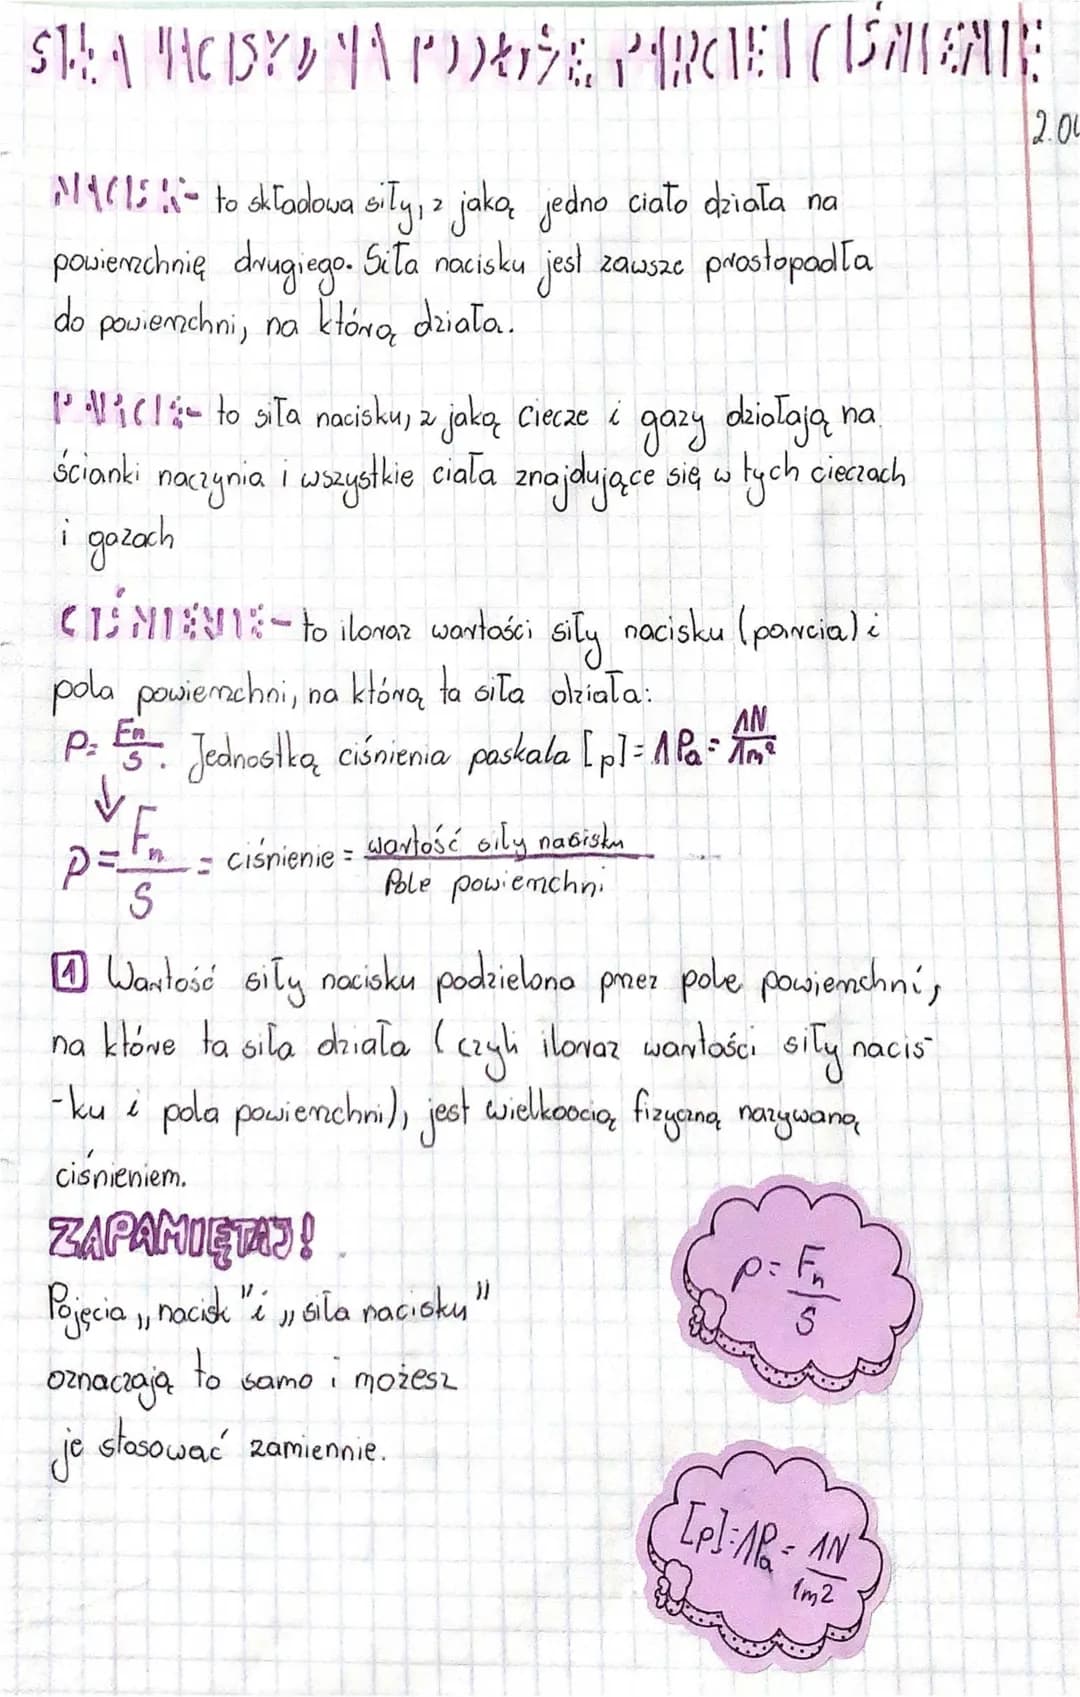 SIŁA NACISKU NA PODŁOŻE, PARCIE I CIŚNIENIE
2.04
NACISK- to składowa siły, z jaką jedno ciało działa na
powierzchnię drugiego. Siła nacisku jest zawsze prostopadła
do powierzchni, na którą działa.
PARCIE- to siła nacisku, z jaką ciecze i gazy działają na
ścianki naczynia i wszystkie ciała znajdujące się w tych cieczach
i gazach
CIŚNIENIE- to iloraz wartości siły nacisku (parcia) i
pola powierzchni, na którą ta siła działa:
p= Fn/S. Jednostką ciśnienia paskala [p]= 1Pa= 1N/1m²
↓
p= Fn/S = ciśnienie = wartość siły nacisku/Pole powierzchni
1 Wartość siły nacisku podzielona przez pole powierzchni,
na które ta siła działa (czyli iloraz wartości siły nacis-
-ku i pola powierzchni), jest wielkością fizyczną nazywaną
ciśnieniem.
ZAPAMIĘTAJ!
Pojęcia „nacisk" i „siła nacisku"
oznaczają to samo i możesz
je stosować zamiennie.
p= Fn/S
[p]=1Pa= 1N/1m2